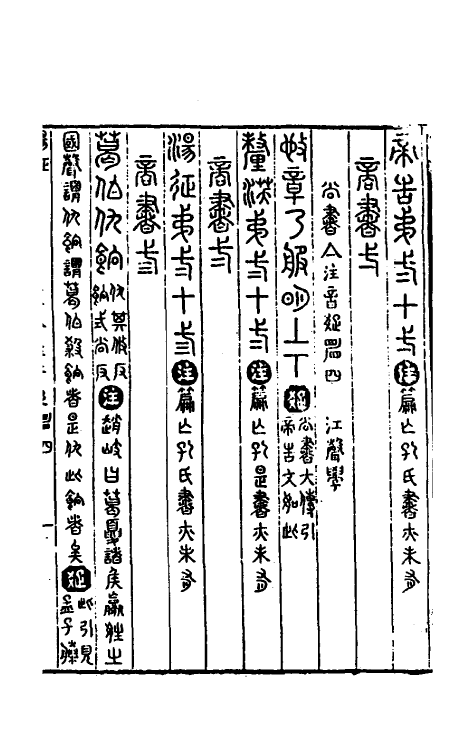 帝告弟弍十弌 注 篇亡孔氏書亦未有
商書弌
尚書亼注音疏卷四 江聲學
施章乃服明上下 疏 尚書大傳引帝告文如此
釐沃弟弍十弍 注 篇亡孔是書亦未有
商書弍
湯征弟弍十弎 注 篇亡孔氏書亦未有
商書弎
葛伯仇餉 仇其攸反餉式尚反 注 趙岐曰葛夏諸侯嬴姓之
國聲謂仇餉謂葛伯殺餉者是仇此餉者矣 疏 此引見孟子滕